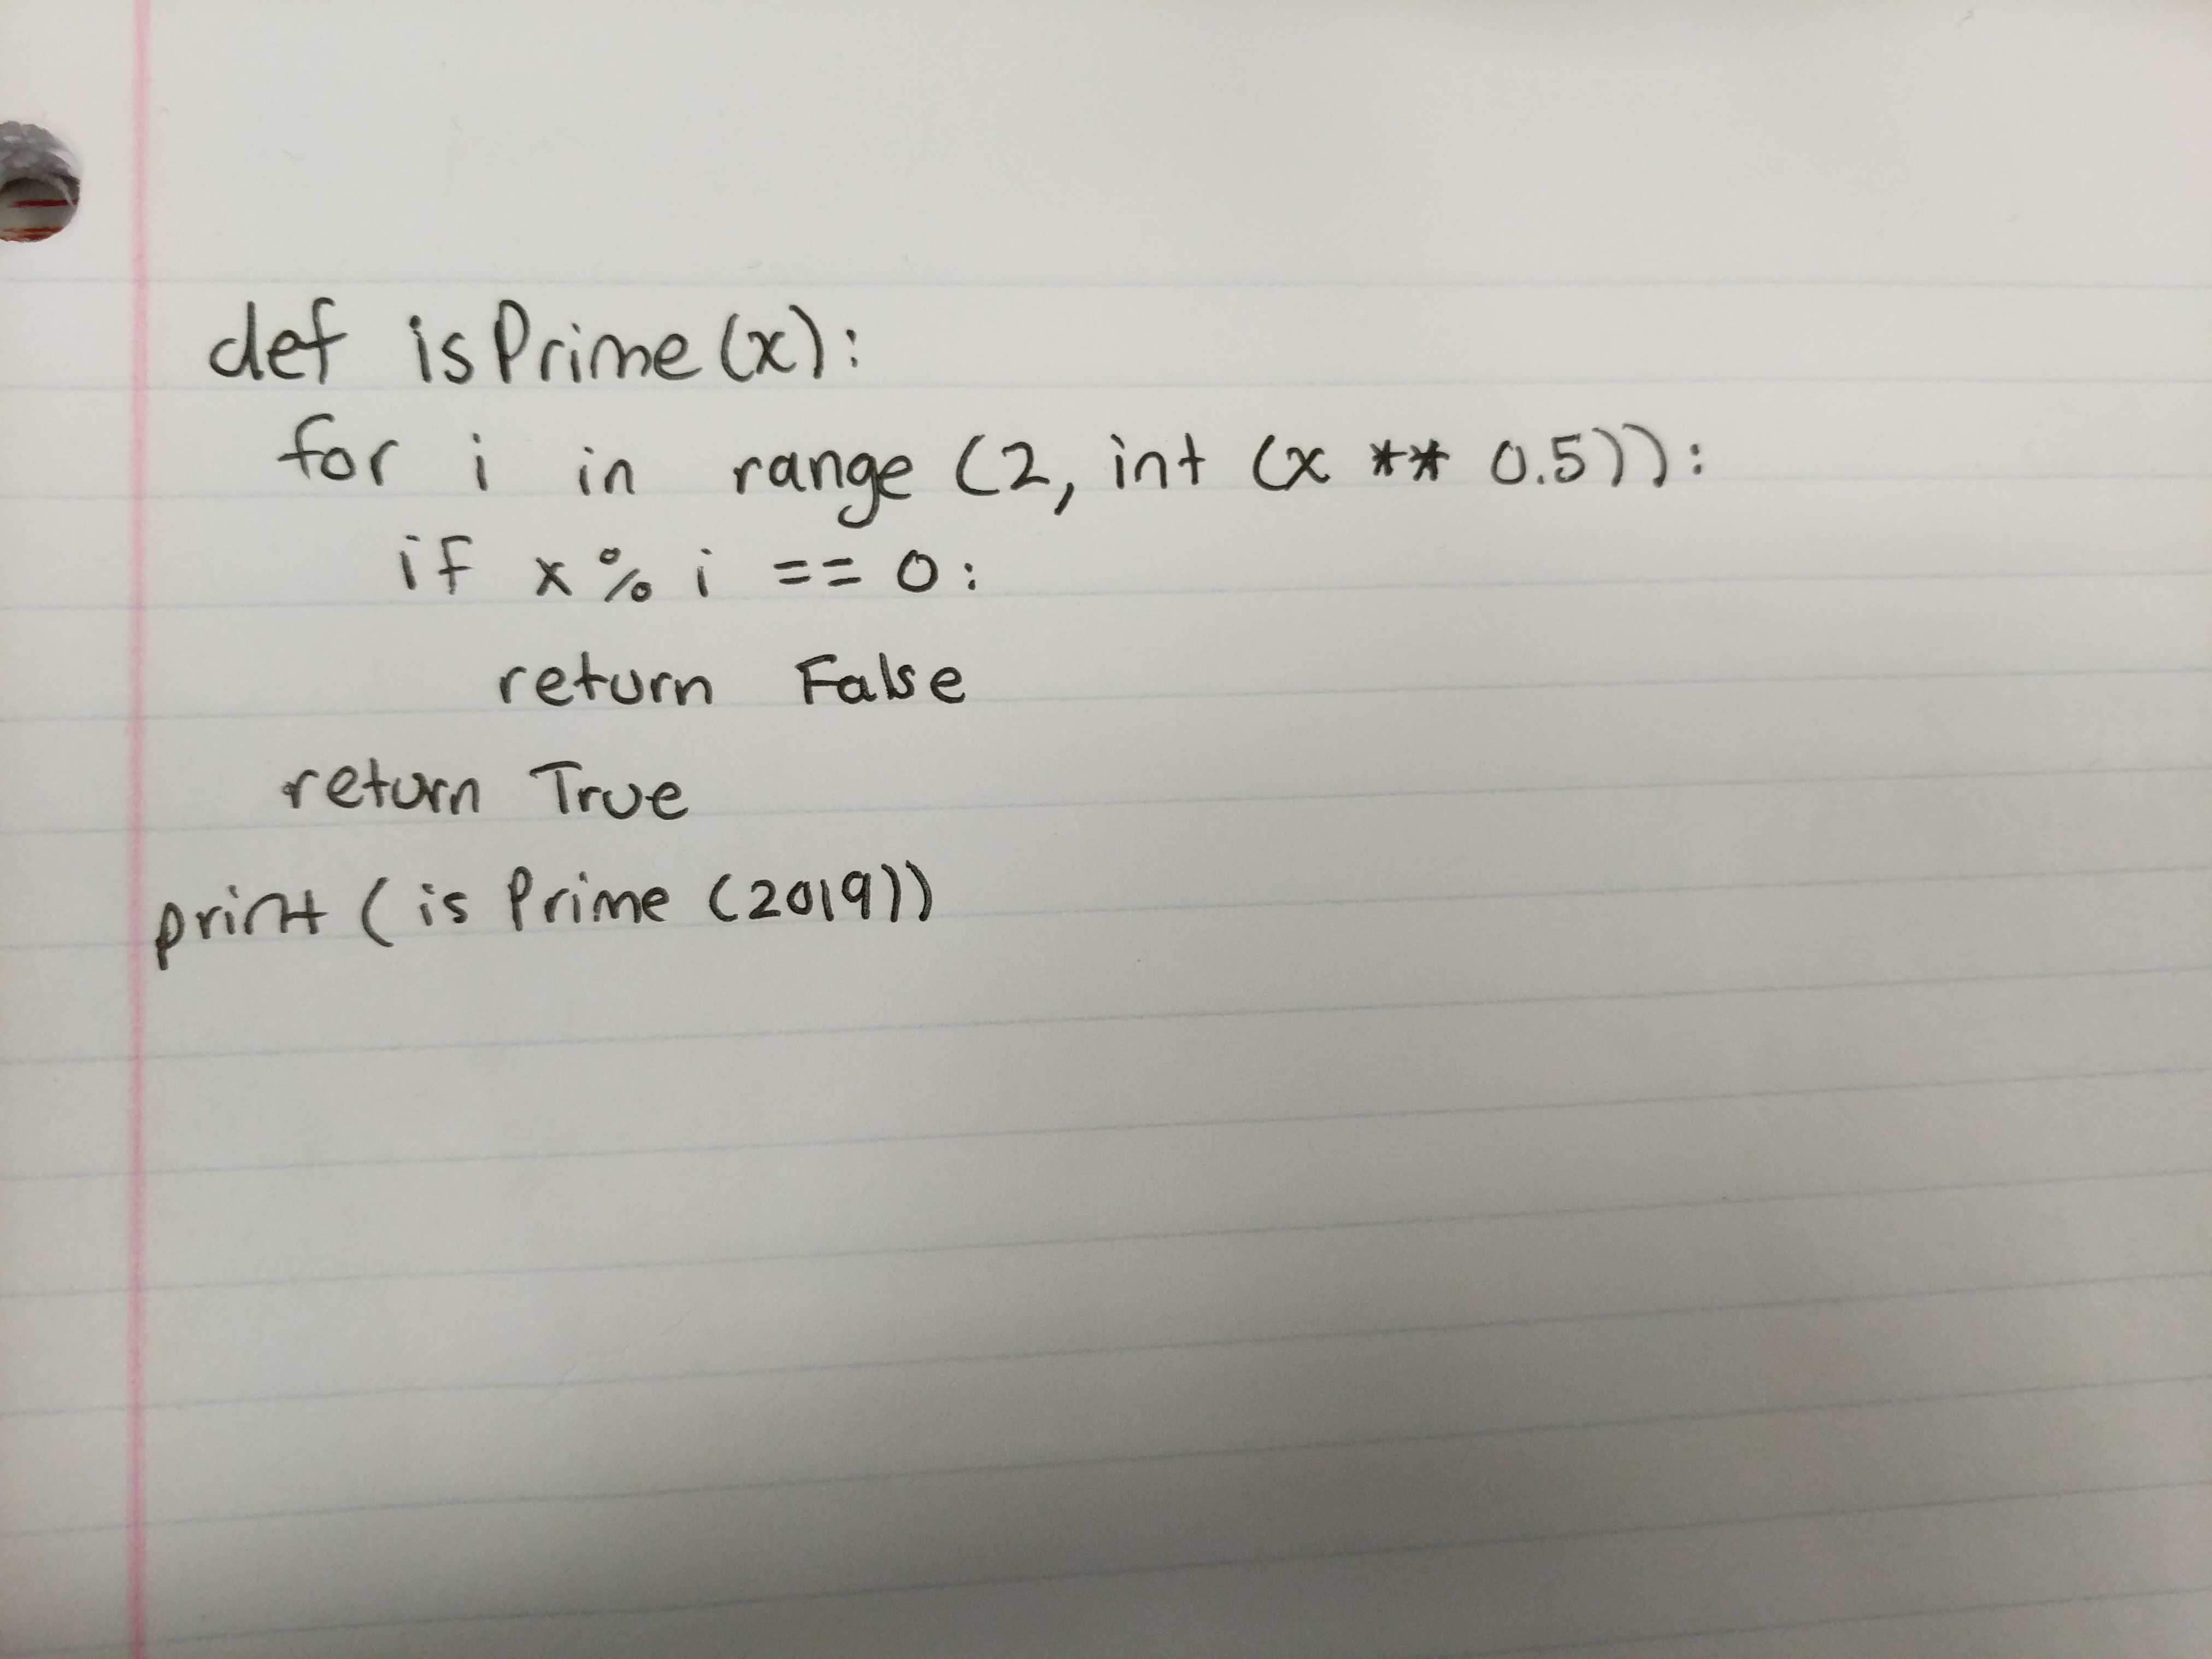 def isPrime(x):
for i in range (2, int (x ** 0.5)):
if x % i == 0:
return False
return True
print (is Prime (2019))